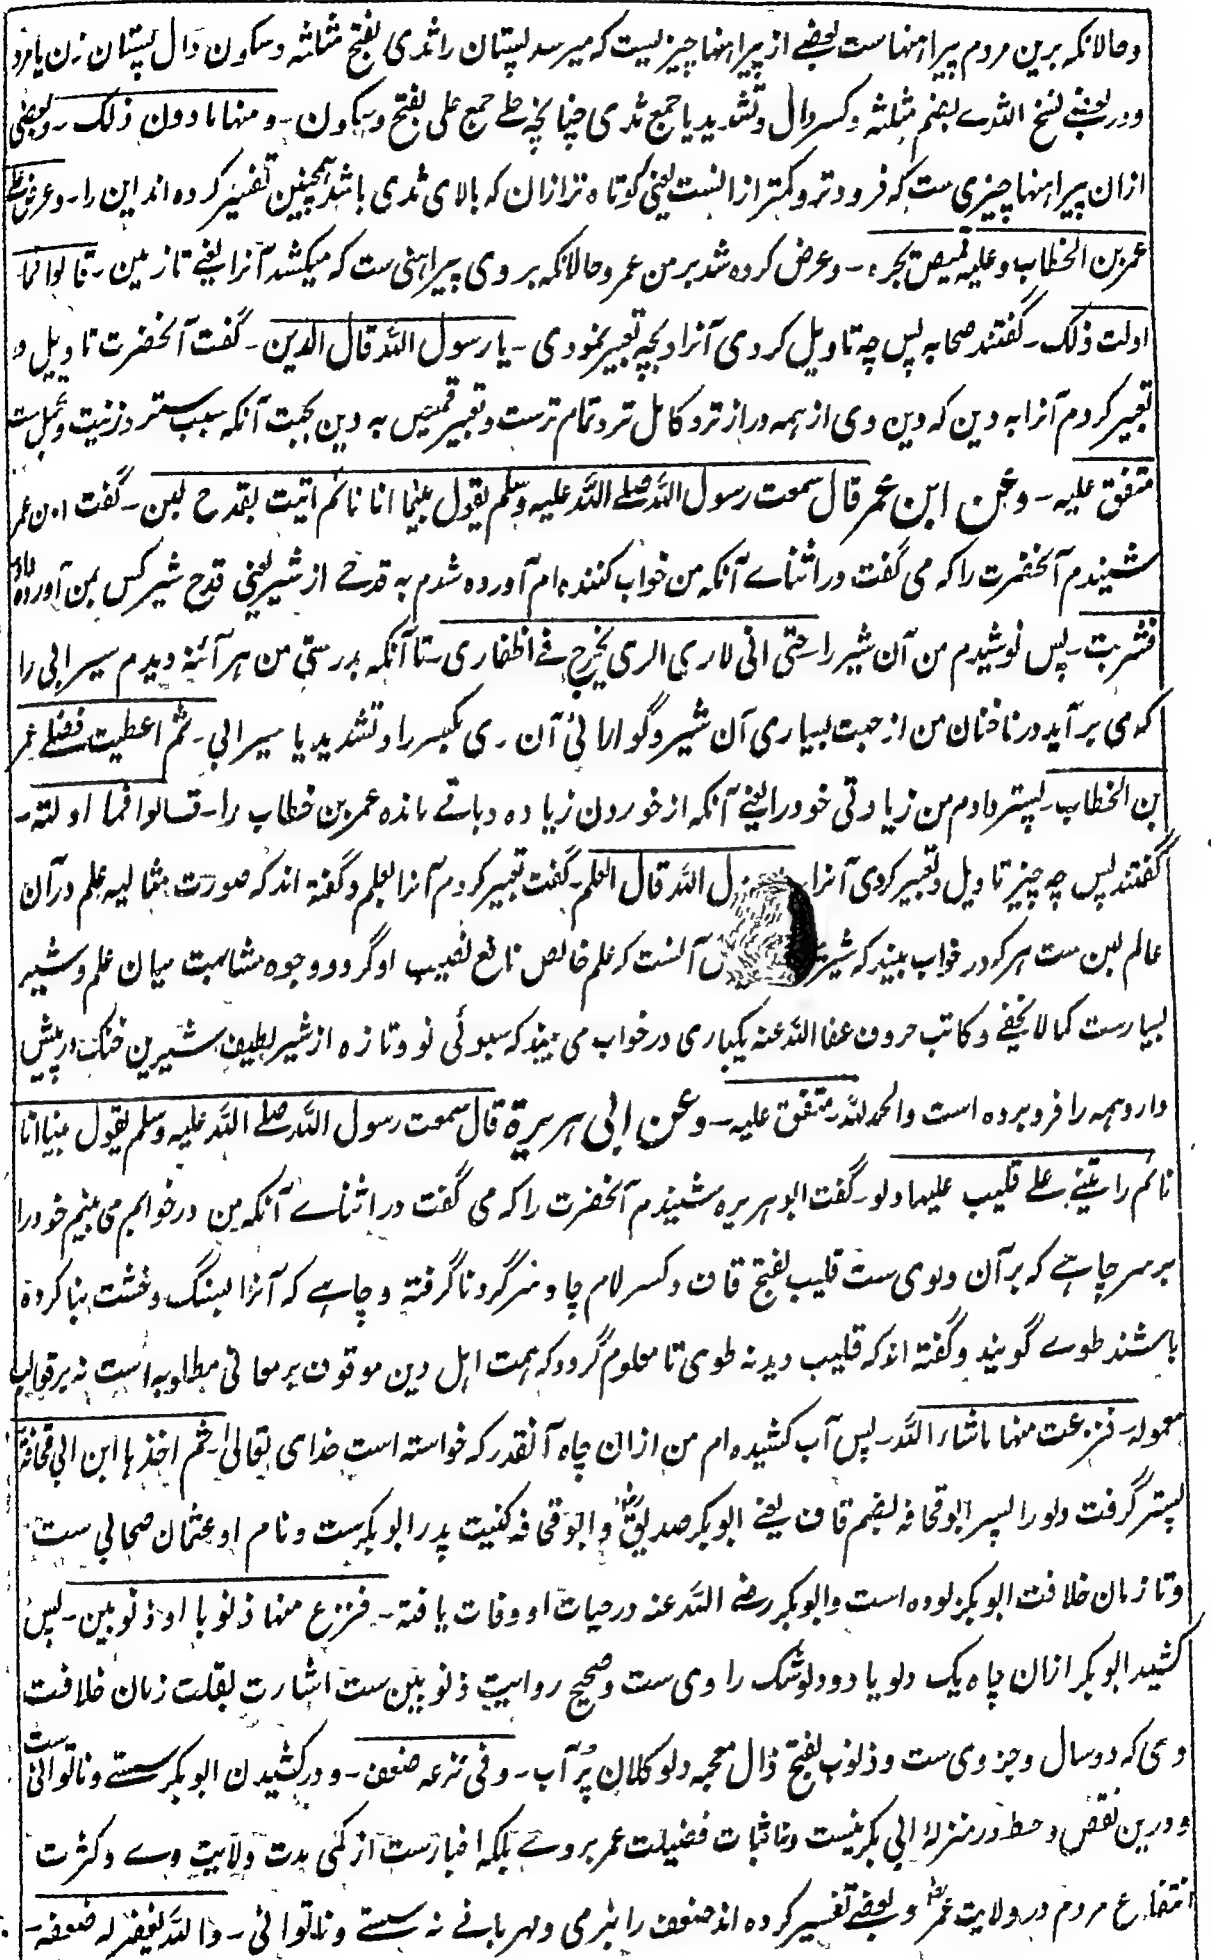 وحالانکه برین مردم پیراهنهاست بعضے از پیراهنها چیزیست که میرسد پستان را ثدی بفتح مثلثه وسکون دال پستان زن یا مرد
ودر بعضے نسخ الثدے بضم مثلثه وکسر دال وتشدید یا جمع ثدی چنانچه حلے جمع حلی بفتح وسکون - ومنها ما دون ذلک - وبعضی
ازان پیراهنها چیزی ست که فرودتر وکمتر ازانست یعنی کوتاه تر ازان که بالای ثدی باشد همچنین تفسیر کرده اند این را - وعرض علے
عمر بن الخطاب وعلیه قمیص یجره - وعرض کرده شد بر من عمر وحالانکه بر وی پیراهنی ست که میکشد آنرا یعنے تا زمین - قالوا فما
اولت ذلک - گفتند صحابه پس چه تاویل کردی آنرا وبچه تعبیر نمودی - یا رسول اللّه قال الدین - گفت آنحضرت تاویل و
تعبیر کردم آنرا به دین که دین وی از همه درازتر وکامل تر وتمام ترست وتعبیر قمیص به دین بجهت آنکه سبب ستر وزینت وتجمل ست
متفق علیه - وعن ابن عمر قال سمعت رسول اللّه صلے اللّه علیه وسلم یقول بینما انا نائم اتیت بقدح لبن - گفت ابن عمر
شنیدم آنحضرت را که می گفت در اثناے آنکه من خواب کننده ام آورده شدم به قدحے از شیر یعنی قدح شیر کس بمن آورده داد
فشربت - پس نوشیدم من آن شیر را - حتی انی لاری الری یخرج فے اظفاری - تا آنکه بدرستی من هر آئنه دیدم سیرابی را
که می برآید در ناخنان من از جهت بسیاری آن شیر وگوارائی آن - ری بکسر را وتشدید یا سیرابی - ثم اعطیت فضلے عمر
بن الخطاب - پستر دادم من زیادتی خود را یعنے آنکه از خوردن زیاده وباقے مانده عمر بن خطاب را - قالوا فما اولته -
گفتند پس چه چیز تاویل وتعبیر کردی آنرا ول اللّه قال العلم - گفت تعبیر کردم آنرا بعلم وگفته اند که صورت مثالیه علم در آن
عالم لبن ست هرکه در خواب بیند که شیر آنست که علم خالص نافع نصیب او گردد ووجوه مشابهت میان علم وشیر
بسیارست کما لا یخفے وکاتب حروف عفا اللّه عنه یکباری در خواب می بیند که سبوئی نو وتازه از شیر لطیف شیرین خنک در پیش
دارد وهمه را فرو برده است والحمد للّه - متفق علیه - وعن ابی هریرة قال سمعت رسول اللّه صلے اللّه علیه وسلم یقول بینا انا
نائم رایتنے علے قلیب علیها دلو - گفت ابو هریره شنیدم آنحضرت را که می گفت در اثناے آنکه من در خوابم می بینم خود را
بر سر چاهے که بر آن دلوی ست قلیب بفتح قاف وکسر لام چاه سر گرد ناگرفته وچاهے که آنرا بسنگ وخشت بنا کرده
باشند طوے گویند وگفته اند که قلیب دید نه طوی تا معلوم گردد که همت اهل دین موقوف بر معانی مطلوبه است نه بر قوالب
معموله - فنزعت منها ما شاء اللّه - پس آب کشیده ام من ازان چاه آنقدر که خواسته است خدای تعالیٰ - ثم اخذها ابن ابی قحافة
پستر گرفت دلو را پسر ابو قحافه بضم قاف یعنے ابو بکر صدیق وابو قحافه کنیت پدر ابو بکرست ونام او عثمان صحابی ست
وتا زمان خلافت ابو بکر بوده است وابو بکر رضے اللّه عنه در حیات او وفات یافته - فنزع منها ذنوبا او ذنوبین - پس
کشید ابو بکر ازان چاه یک دلو یا دو دلو شک راوی ست وصحیح روایت ذنوبین ست اشارت بقلت زمان خلافت
وی که دو سال وچیزوی ست وذنوب بفتح ذال معجمه دلو کلان پُر آب - وفی نزعه ضعف - ودر کشیدن ابو بکر سستے وناتوانی ست
ودرین نقص وحط در منزلۀ ابی بکر نیست ونه اثبات فضیلت عمر بر وے بلکه اخبارست از کمی مدت ولایت وے وکثرت
انتفاع مردم در ولایت عمر وبعضے تفسیر کرده اند ضعف را بنرمی ومهربانے نه سستے وناتوانی - واللّه یغفر له ضعفه -